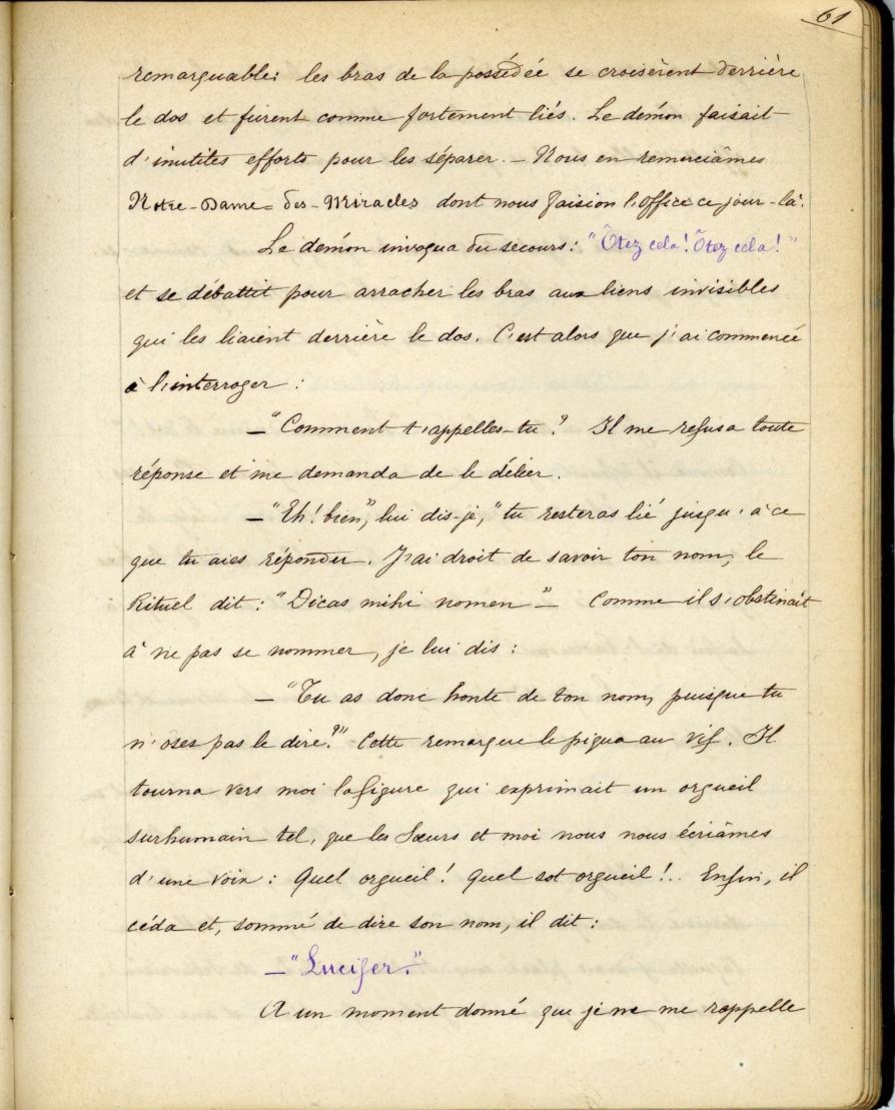 61
remarquable: les bras de la possédée se croisèrent derrière
le dos et furent comme fortement liés. Le démon faisait
d'inutiles efforts pour les séparer. — Nous en remerciâmes
Notre-Dame-des-Miracles dont nous faision l'office ce jour-là.
Le démon invoqua du secours: "Ôtez cela! Ôtez cela!"
et se débattit pour arracher les bras aux liens invisibles
qui les liaient derrière le dos. C'est alors que j'ai commencé
à l'interroger :
— "Comment t'appelles-tu? Il me refusa toute
réponse et me demanda de le délier.
— "Eh! bien", lui dis-je, "tu resteras lié jusqu'à ce
que tu aies réponder. J'ai droit de savoir ton nom, le
Rituel dit : "Dicas mihi nomen" — Comme il s'obstinait
à ne pas se nommer, je lui dis :
— "Tu as donc honte de ton nom, puisque tu
n'oses pas le dire?" Cette remarque le piqua au vif. Il
tourna vers moi la figure qui exprimait un orgueil
surhumain tel, que les Sœurs et moi nous nous écriâmes
d'une voix : Quel orgueil! Quel sot orgueil!.. Enfin, il
céda et, sommé de dire son nom, il dit :
— "Lucifer."
A un moment donné que je ne me rappelle